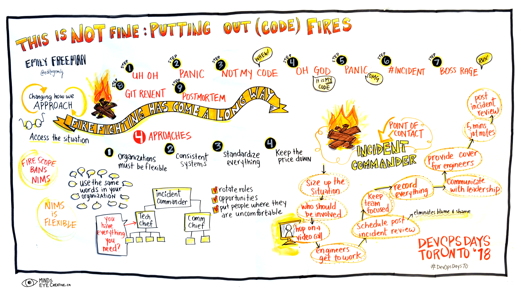 THIS IS NOT FINE: PUTTING OUT (CODE) FIRES
EMILY FREEMAN
STEP 1 UH OH
STEP 2 PANIC
STEP 3 NOT MY CODE
4 OH GOD
IT IS MY CODE
STEP 5 PANIC
STEP 6 #INCIDENT
STEP 7 BOSS RAGE
8 GIT REVERT
9 POSTMORTEM
FIREFIGHTING HAS COME A LONG WAY
Changing how we
APPROACH
Access the situation
4 APROACHES
1 organizations
must be flexible
2 consistent
systems
3 standardize
everything
4 keep the
price down
FIRE SCOPE
BANS
NIMS
NIMS
IS
FLEXIBLE
use the same
words in your
organization
YOU
have
everything
you
need!
Incident
Commander
Tech
Chief
Comm
Chief
rotate roles
opportunities
put people where they
are uncomfortable
INCIDENT
COMMANDER
POINT OF
CONTACT
Size up the
Situation
who should
be involved
hop on a
video call
engineers
get to work
Schedule post
incident review
eliminates blame & shame
Keep
team
focused
record
everything
Communicate
with leadership
provide cover
for engineers
5 mins
post
incident
review
DEVOPSDAYS
TORONTO '18
#DEVOPSDAYSTO
MIND'S
EYE CREATIVE.CA